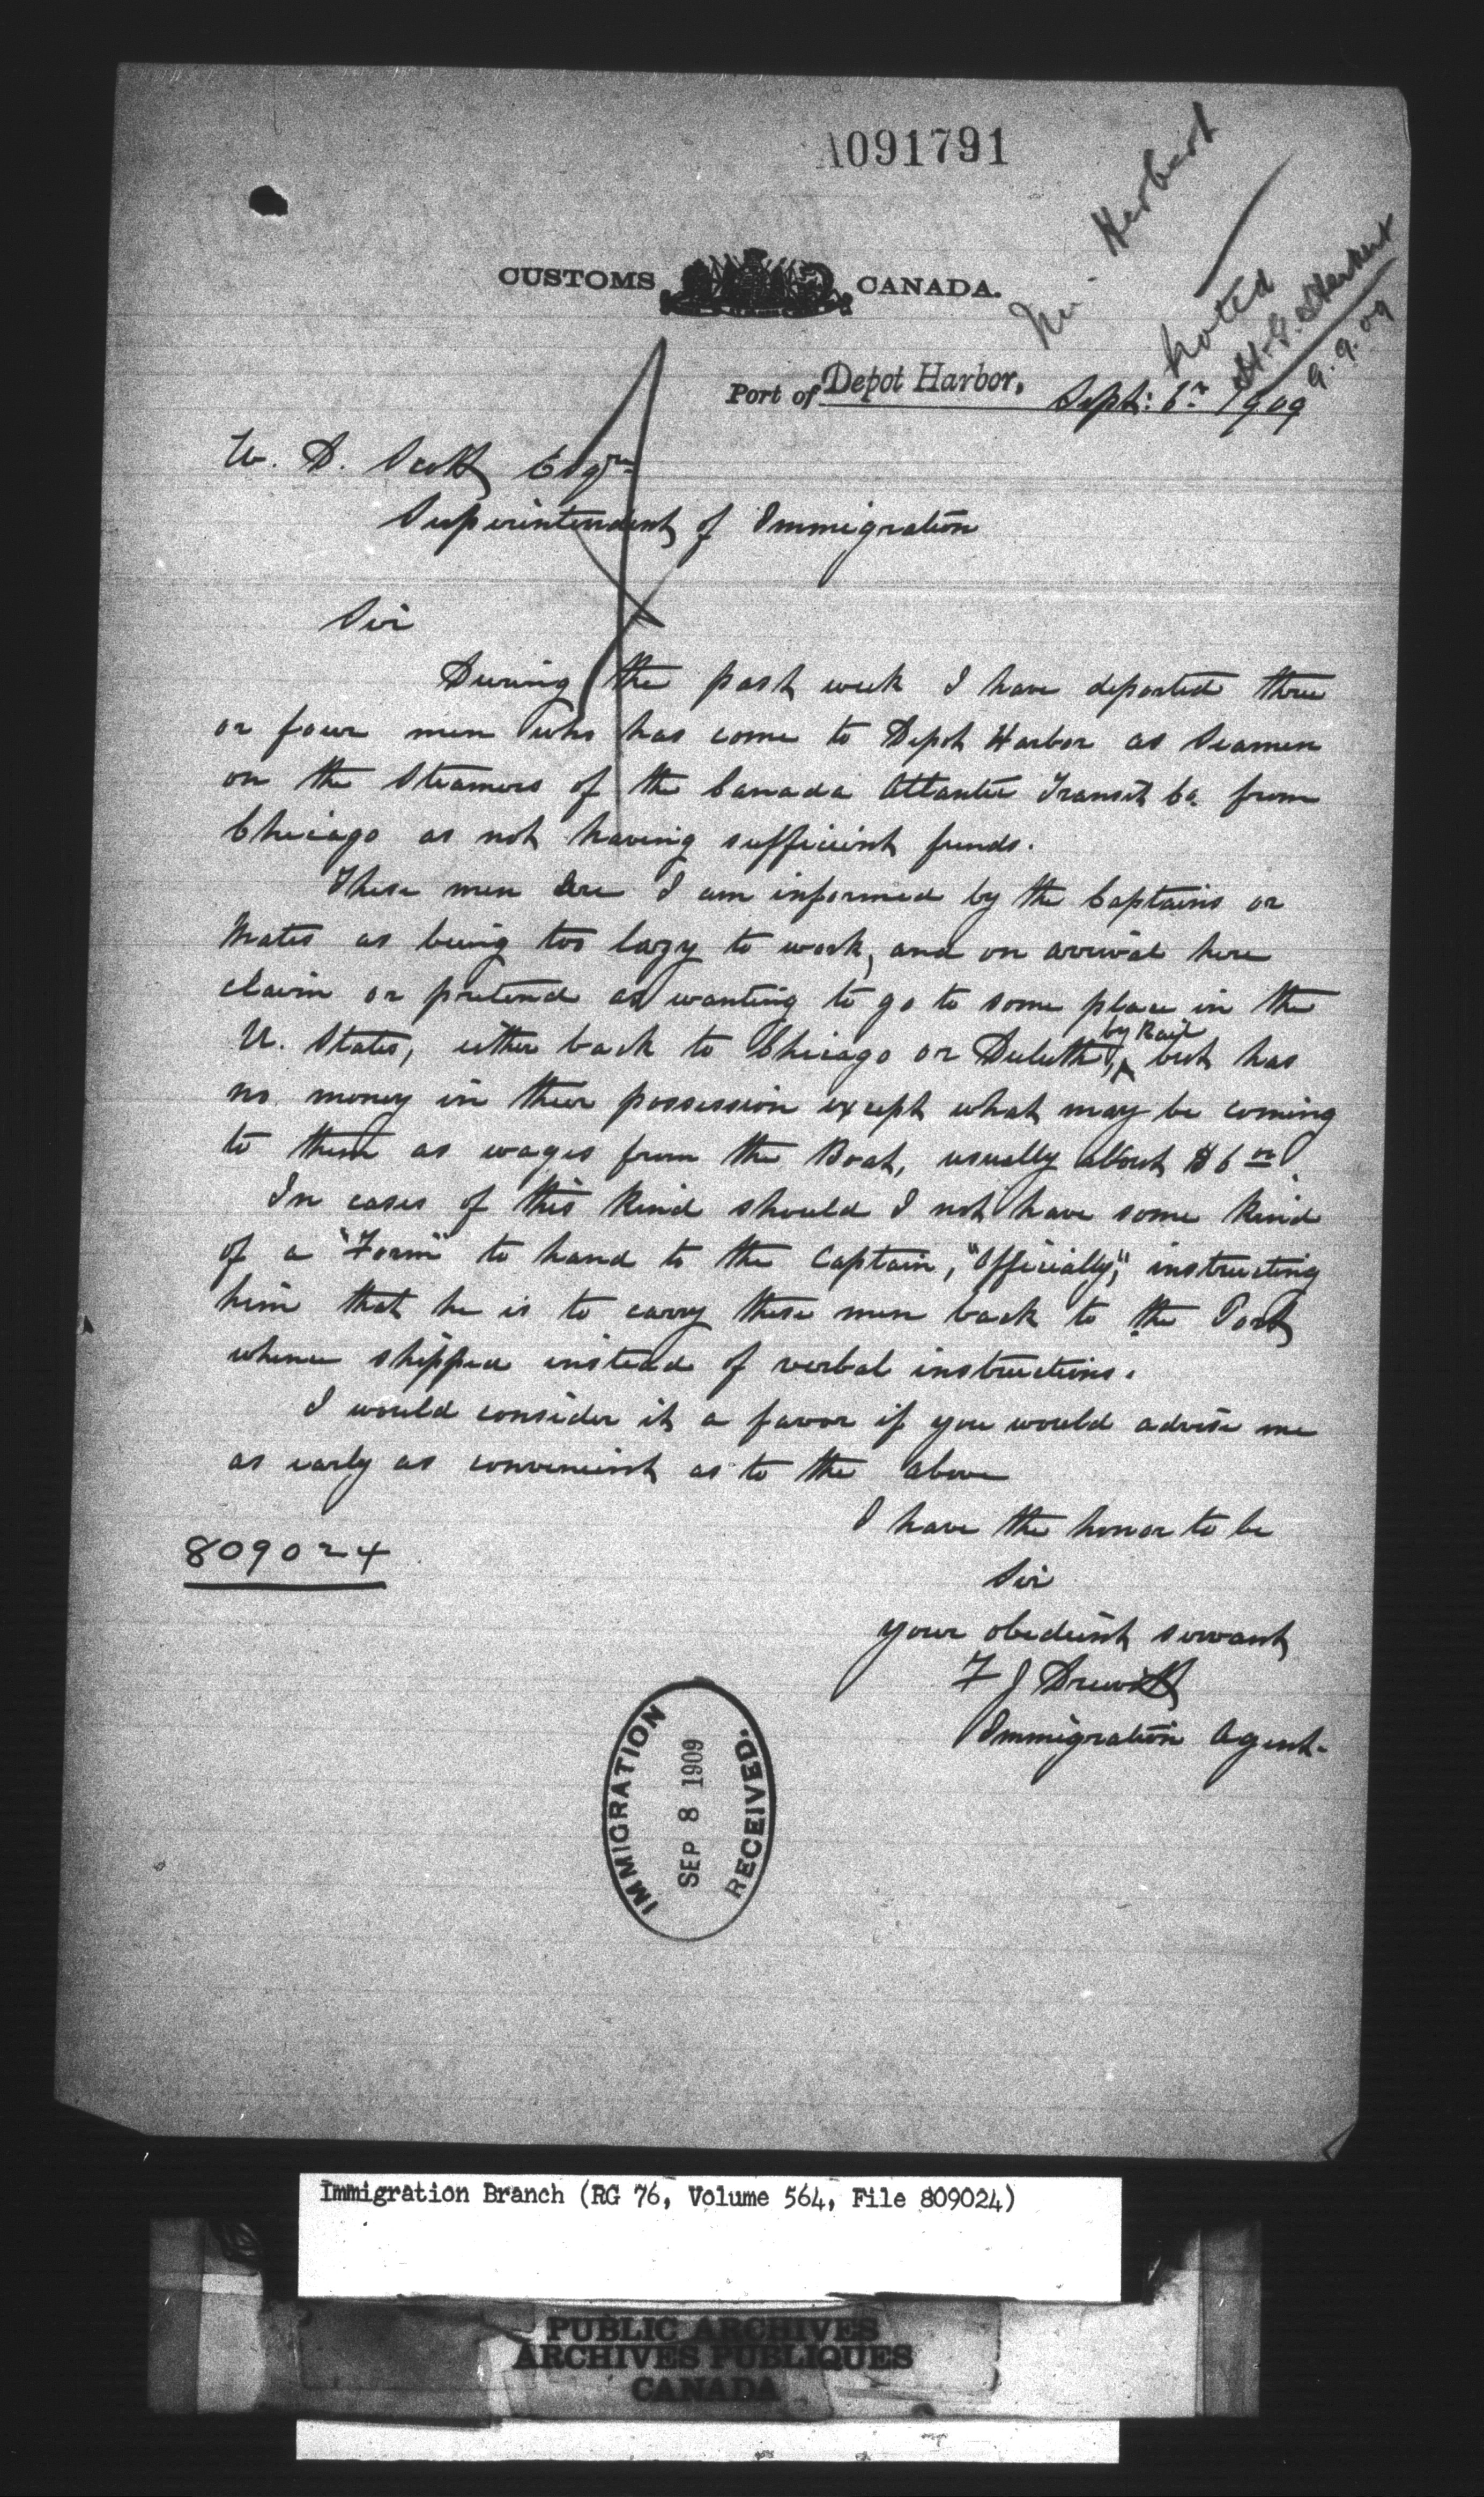 A091791
Mr. Herbert
noted
9.9.09
CUSTOMS CANADA.
Port of Depot Harbor, Sept: 6th 1909
W. D. Scott Esqre
Superintendent of Immigration
Sir
During the past week I have deported three
or four men who has come to Depot Harbor as Seamen
on the Steamers of the Canada Atlantic Transit Co. from
Chicago as not having sufficient funds.
These men are I am informed by the Captains or
Mates as being too lazy to work, and on arrival here
claim or pretend as wanting to go to some place in the
U. States, either back to Chicago or Duluth, by Rail but has
no money in their possession except what may be coming
to them as wages from the Boat, usually about $6 00.
In cases of this kind should I not have some kind
of a "Form" to hand to the Captain, "Officially", instructing
him that he is to carry these men back to the Port
whence shipped instead of verbal instructions.
I would consider it a favor if you would advise me
as early as convenient as to the above
I have the honor to be
Sir
your obedient servant
F J Drewitt
Immigration Agent.
809024
IMMIGRATION
SEP 8 1909
RECEIVED.
Immigration Branch (RG 76, Volume 564, File 809024)
PUBLIC ARCHIVES
ARCHIVES PUBLIQUES
CANADA